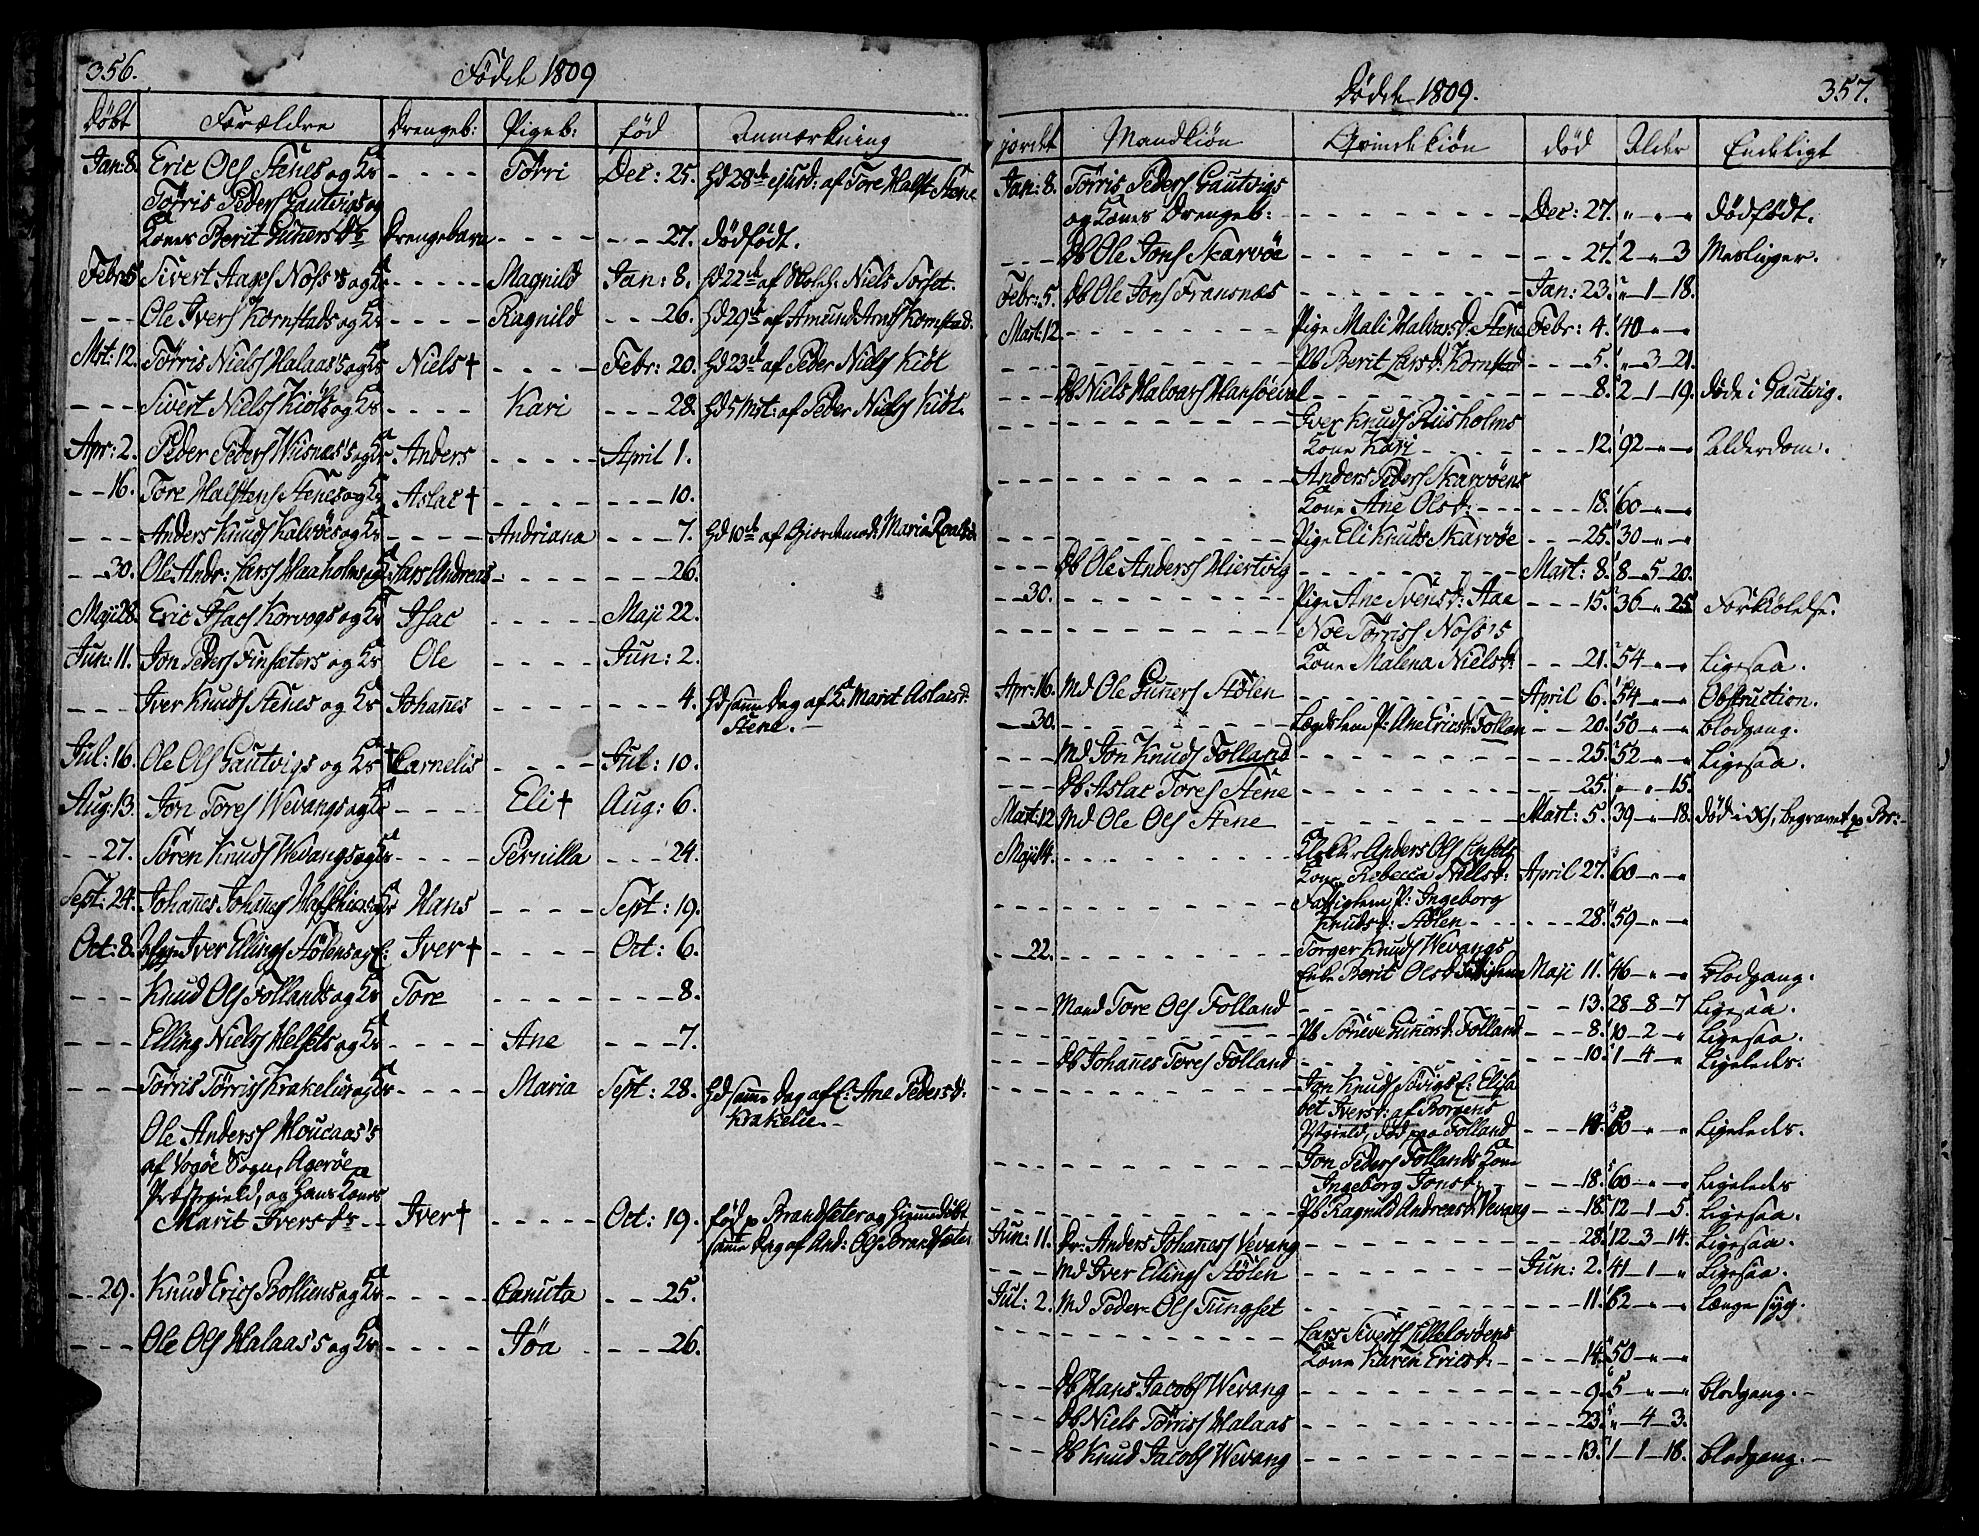 356.
Födde 1809
Döbt Forældre Drengeb: Pigeb: fød Anmærkning
Jan: 8. Eric Ols Stenes og H: - - - - Törri Dec: 25. Hd 28de ejusd: af Tore Halst Stene
Törris Peders Gautvigs og
Kones Berit Gunersd: Drengebarn - - - - - - 27. dödfödt.
Febr: 5 Sivert Aages Noss's og H: - - - - Magnild Jan: 8. Hd 22de af Niels Torset.
- - - Ole Ivers Kornstads og H: - - - - Ragnild - - 26. Hd 29de af Amund Arns Kornstad.
Mst: 12. Törris Niels Halaas's og H: Niels † - - - - Febr: 20. Hd 23de af Peder Niels Kiöl
- - - Sivert Niels Kiöls og H: - - - - Kari - - - 28. Hd 5 Mst: af Peder Niels Kiöl.
Apr: 2. Peder Peders Wiisnæs's og H: Anders - - - - April 1.
- - 16. Tore Halstens Stenes og H: Aslac † - - - - - - - 10.
- - - Anders Knuds Kalvöes og H: - - - - Andriana - - - 7. Hd 10de af Giordemod: Maria Roalds:
- - 30. Ole Andr: Lars Haaholms og H: Lars Andreas - - - - - - - 26.
Maji 28. Eric Isacs Korvogs og H: Isac - - - - Maji 22.
Jun: 11. Jon Peders Finsæters og H: Ole - - - - Jun: 2.
- - - Iver Knuds Stenes og H: Johañes - - - - - - - 4. Hd samme dag af H: Marit Aslacsd:
Stene. -
Jul: 16. Ole Ols Gautvigs og H: † Carnelis - - - - Jul: 10.
Aug: 13. Jon Tores Wevangs og H: - - - - Eli † Aug: 6.
- - 27. Sören Knuds Wevangs og H: - - - - Pernilla - - - 24.
Sept: 24. Johañes Johañes og H: Hans - - - - Sept: 19.
Oct: 8. Iver Ellings Stölens og E: Iver † - - - - Oct: 6.
- - - Knud Ols Follands og H: Tore - - - - - - - 8.
- - - Elling Niels Helsets og H: - - - - Ane - - - 7.
- - - Törris Törris Krakelies og H: - - - - Maria Sept: 28. Hd samme dag af E: Ane Pedersd:
Krakelie. -
Ole Anders Moucaas's
af Vogöe Sogn, Ageröe
Præstegield, og Hans Kones
Marit Iversd: - - Iver † - - - - - Oct: 19. fød p Brandsæter og Hjemmedöbt
samme dag af And: Ols Brandsæter
- - 29. Knud Erics Bolliens og H: - - - - Canuta - - - 25.
- - - Ole Ols Halaas's og H: - - - - Jöa - - - 26.
Dödde 1809. 357.
jordet Mandkiön Qvindekiön död Alder Endeligt
Jan: 8. Törris Peders Gautvigs
og Kones Drengeb: - - - - Dec: 27. " - " - " dödfödt.
- - - Db Ole Jons Skarvöe - - - - 27. 2 - " - 3 Meslinger.
Febr: 5. Db Ole Jons Fransnæs - - - - Jan: 23. " - 1 - 18.
Mart: 12. - - - - Pige Mali Halvarsd: Stene Febr: 4. 40 - " - "
- - - - - - - Pb Berit Larsd: Kornstad - - - 5. " - 3 - 21.
- - - Db Niels Halvars - - - - 8. 2 - 1 - 19. döde i Gautvig.
- - - - - - - Iver Knuds Riisholms
Kone Kari - - - - 12. 92 - " - " Alderdom.
- - - - - - - Anders Peders Skarvöens
Kone Ane Olsd: - - - - 18. 60 - " - "
- - - - - - - Pige Eli Knuds Skarvöe - - - 25. 30 - " - "
- - - Db Ole Anders Hiertvig - - - - Mart: 8. 8 - 5 - 20.
- - 30. - - - - Pige Ane Svensd: Aae - - - 15. 36 - " - 25 Forkiölelse.
- - - - - - - Noe Törris Noss's
Kone Malena Nielsd: - - 21. 54 - " - " Ligesaa.
Apr: 16. Md Ole Guners Stölen - - - - April 6. 54 - " - " Obstruction.
- - 30. - - - - Lægdslem P: Ane Ericsd: Follan - - 20. 50 - " - " Blodgang.
- - - Md Jon Knuds Folland - - - - 25. 52 - " - " Ligesaa.
- - - Db Aslac Tores Stene - - - - 25. " - " - 15.
Mart: 12 Md Ole Ols Stene - - - - Mart: 5. 39 - " - 18. död i begravet p Br: -
Maji 14. - - - - Anders Ols
Kone Rebecca Nielsd: April 27. 60 - " - "
- - - - - - - Fattiglem, P: Ingeborg
Knudsd: Stölen - - - - 28. 59 - " - "
- - 22. - - - - Torger Knuds Wevangs
Enke Berit Olsd: Fattiglem Maji 11. 46 - " - " Blodgang.
- - - Mand Tore Ols Folland - - - - 13. 28 - 8 - 7 Ligesaa.
- - - - - - - Pb Töneve Gunersd: Folland - - 8. 10 - 2 - " Ligesaa.
- - - Db Johañes Tores Folland - - - - 10. 1 - 4 - " Ligeledes.
- - - - - - - Jon Knuds Sövigs E: Elisa
bet Iversd: af Borgens
Pstgield, död paa Folland - - - 14. 60 - " - " Ligeledes.
- - - - - - - Jon Peders Follands Kone
Ingeborg Jonsd: - - - 18. 60 - " - " Ligeledes
- - - - - - - Pb Ragnild Andreasd: Vevang - - 18. 12 - 1 - 5. Ligesaa.
Jun: 11. Dr: Anders Johañes Vevang - - - - 28. 12 - 3 - 14. Ligesaa.
- - - Md Iver Ellings Stölen - - - - Jun: 2. 41 - 1 - " Ligesaa.
Jul: 2. Md Peder Ols Tungset - - - - 11. 62 - " - " Længe syg.
- - - - - - - Lars Siverts Lillelovöens
Kone Karen Ericsd: - - - 14. 50 - " - "
- - - Db Hans Jacobs Wevang - - - - 9. 5 - " - " Blodgang. -
- - - Db Niels Törris Halaas - - - - 23. " - 4 - 3.
- - - Db Knud Jacobs Wevang - - - - 13. 1 - 1 - 18. Blodgang. -